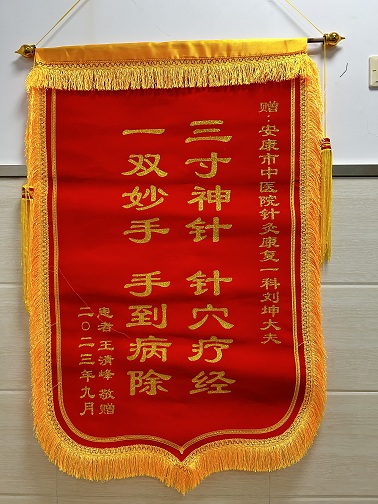 赠：安康市中医院针灸康复一科刘坤大夫
三寸神针 针穴疗经
一双妙手 手到病除
患者 王清峰 敬赠
二〇二三年九月